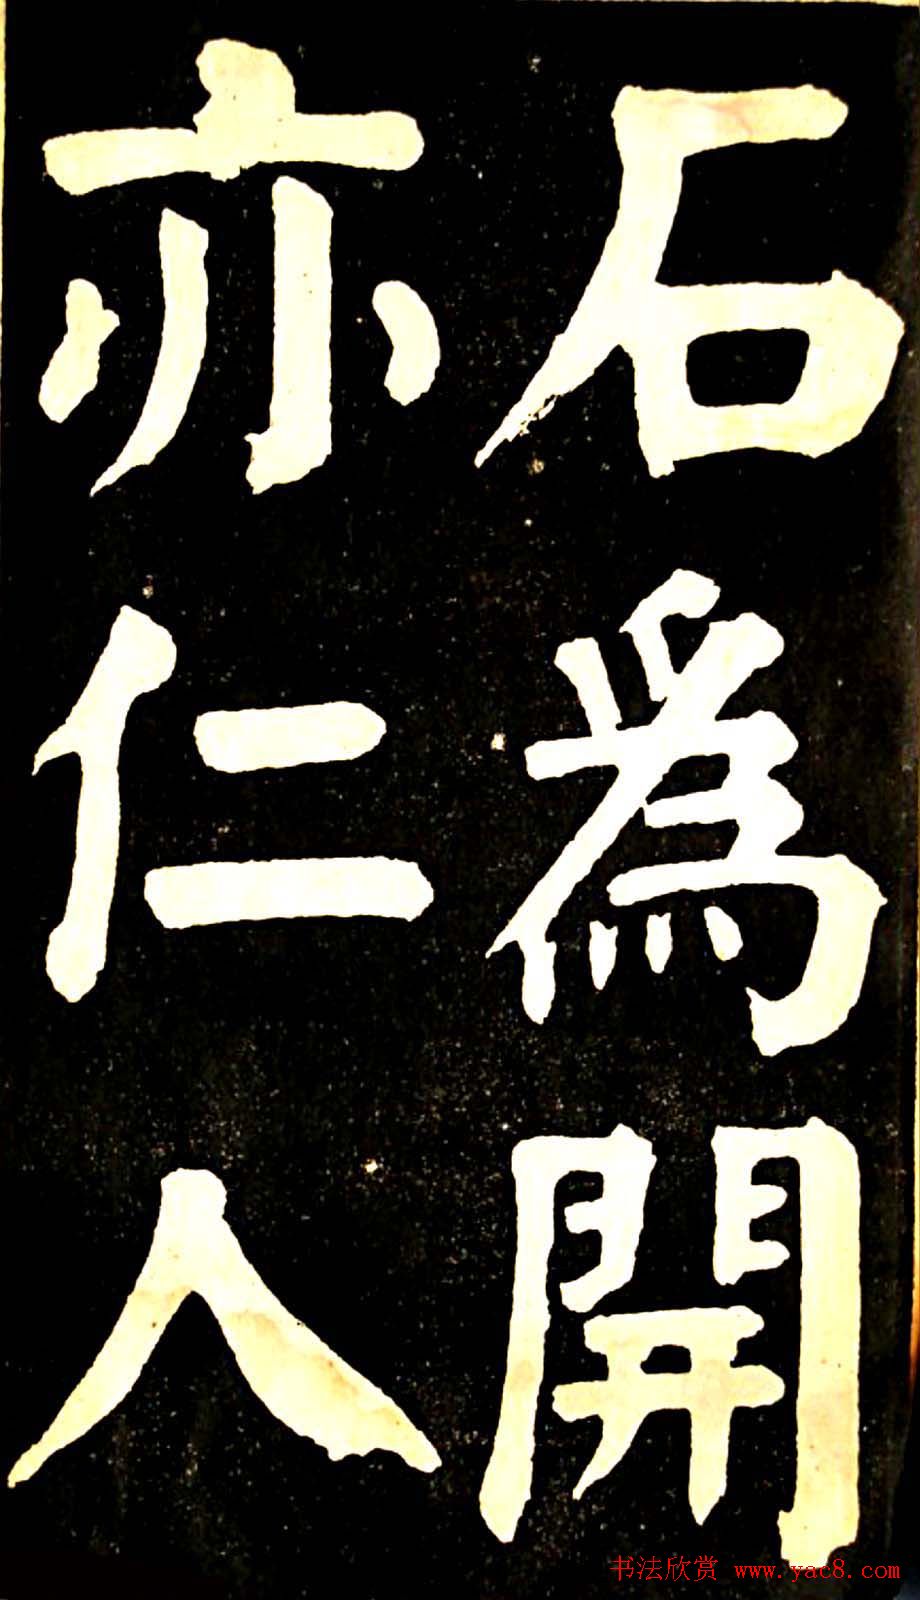 石為開
亦仁人
书法欣赏 www.yac8.com